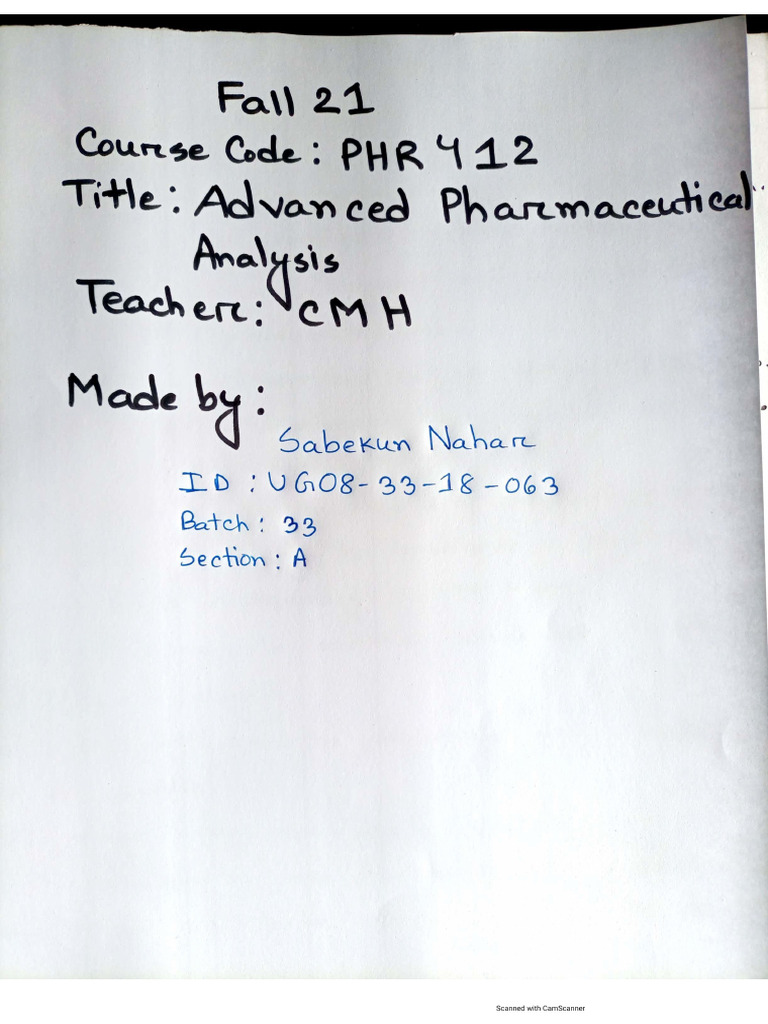 Fall 21
Course Code: PHR 412
Title: Advanced Pharmaceutical
Analysis
Teacher: CMH
Made by:
Sabekun Nahar
ID : UG08-33-18-063
Batch: 33
Section: A
Scanned with CamScanner